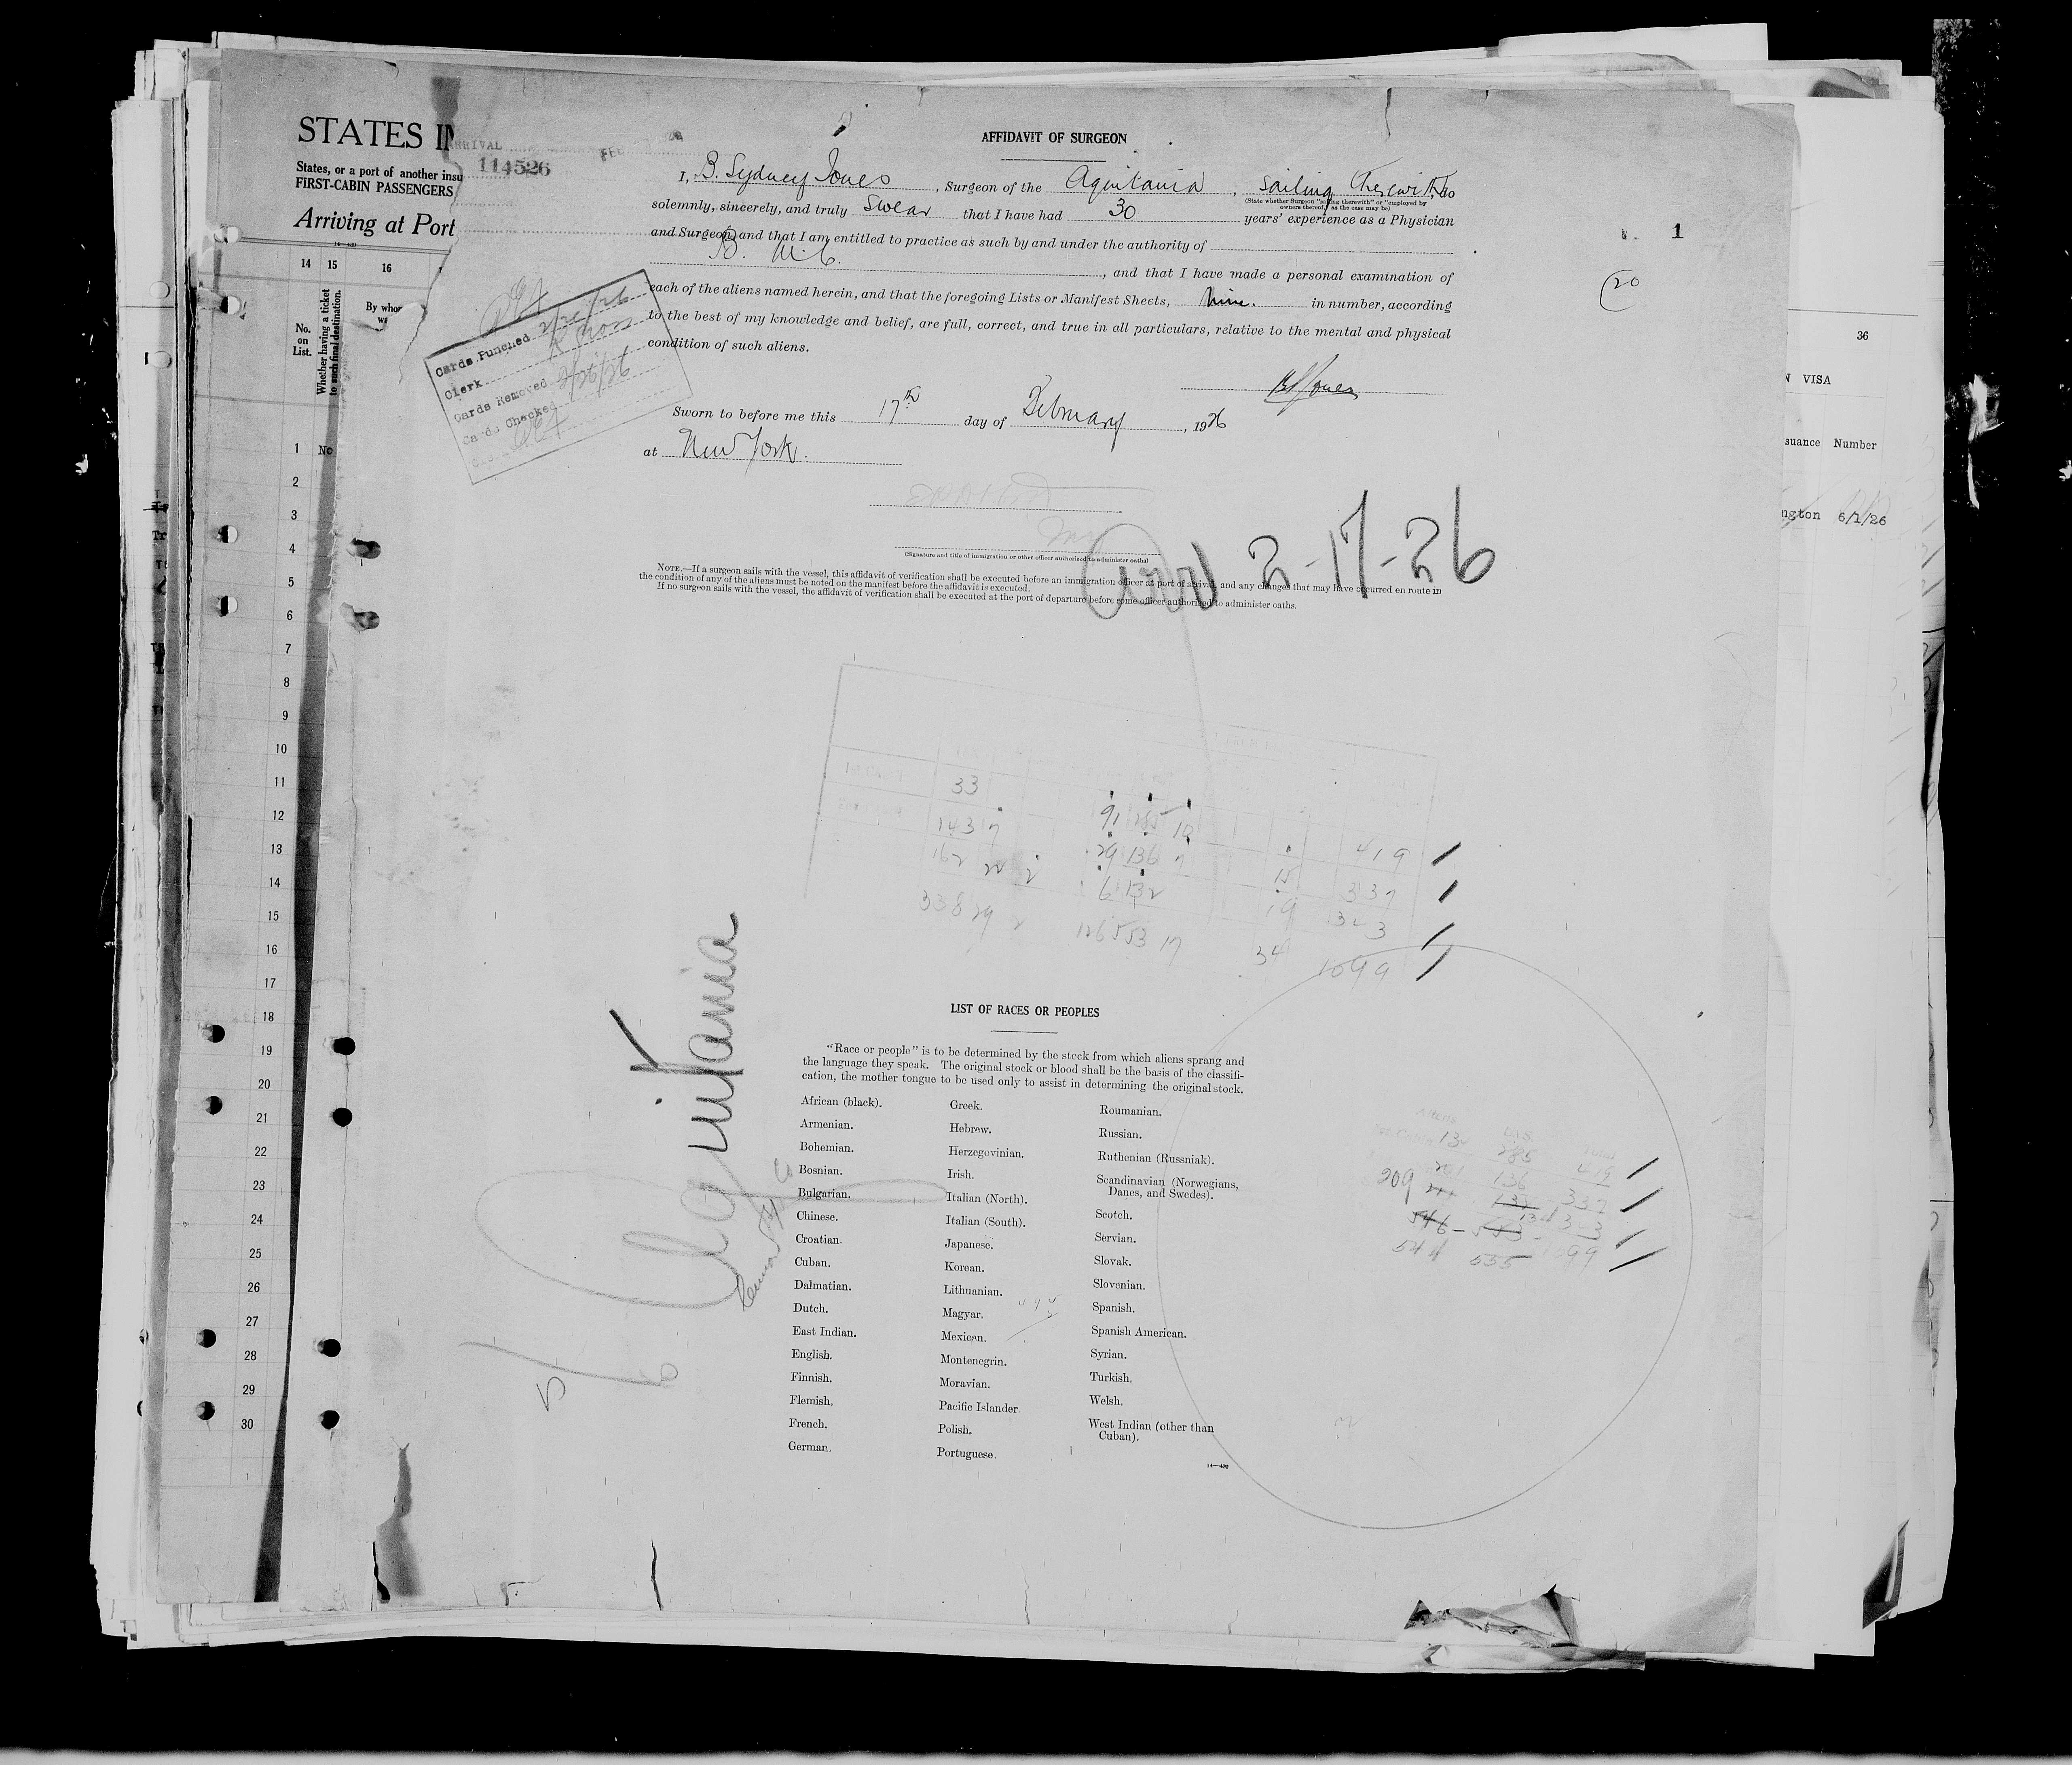 STATES IN
States, or a port of another insu
FIRST-CABIN PASSENGERS
Arriving at Port
ARRIVAL
114526
14 15 16
No. on List.
Whether having a ticket to such final destination.
By whom
1 No
2
3
4
5
6
7
8
9
10
11
12
13
14
15
16
17
18
19
20
21
22
23
24
25
26
27
28
29
30
Cards Punched
Clerk
Cards Removed
Cards Checked
AFFIDAVIT OF SURGEON
I, B. Sydney Jones, Surgeon of the Aquitania, Sailing therewith, do
(State whether Surgeon "sailing therewith" or "employed by
owners thereof," as the case may be)
solemnly, sincerely, and truly Swear that I have had 30 years' experience as a Physician
and Surgeon and that I am entitled to practice as such by and under the authority of
, and that I have made a personal examination of
each of the aliens named herein, and that the foregoing Lists or Manifest Sheets, nine. in number, according
to the best of my knowledge and belief, are full, correct, and true in all particulars, relative to the mental and physical
condition of such aliens.
BSJones
Sworn to before me this 17th day of February, 1926
at New York.
(Signature and title of immigration or other officer authorized to administer oaths)
Arr 2-17-26
NOTE.—If a surgeon sails with the vessel, this affidavit of verification shall be executed before an immigration officer at port of arrival, and any changes that may have occurred en route in
the condition of any of the aliens must be noted on the manifest before the affidavit is executed.
If no surgeon sails with the vessel, the affidavit of verification shall be executed at the port of departure before some officer authorized to administer oaths.
1
20
36
N VISA
suance Number
ngton 6/1/26
33 91 285 10 419
143 7 29 136 7 15 337
162 22 2 6 132 19 323
338 29 2 126 553 17 34 1099
Aquitania
LIST OF RACES OR PEOPLES
"Race or people" is to be determined by the stock from which aliens sprang and
the language they speak. The original stock or blood shall be the basis of the classifi-
cation, the mother tongue to be used only to assist in determining the original stock.
African (black).
Armenian.
Bohemian.
Bosnian.
Bulgarian.
Chinese.
Croatian.
Cuban.
Dalmatian.
Dutch.
East Indian.
English.
Finnish.
Flemish.
French.
German.
Greek.
Hebrew.
Herzegovinian.
Irish.
Italian (North).
Italian (South).
Japanese.
Korean.
Lithuanian.
Magyar.
Mexican.
Montenegrin.
Moravian.
Pacific Islander.
Polish.
Portuguese.
Roumanian.
Russian.
Ruthenian (Russniak).
Scandinavian (Norwegians,
Danes, and Swedes).
Scotch.
Servian.
Slovak.
Slovenian.
Spanish.
Spanish American.
Syrian.
Turkish.
Welsh.
West Indian (other than
Cuban).
14—430
Aliens
285 419
201 136 337
209
546 553
544 555 1099